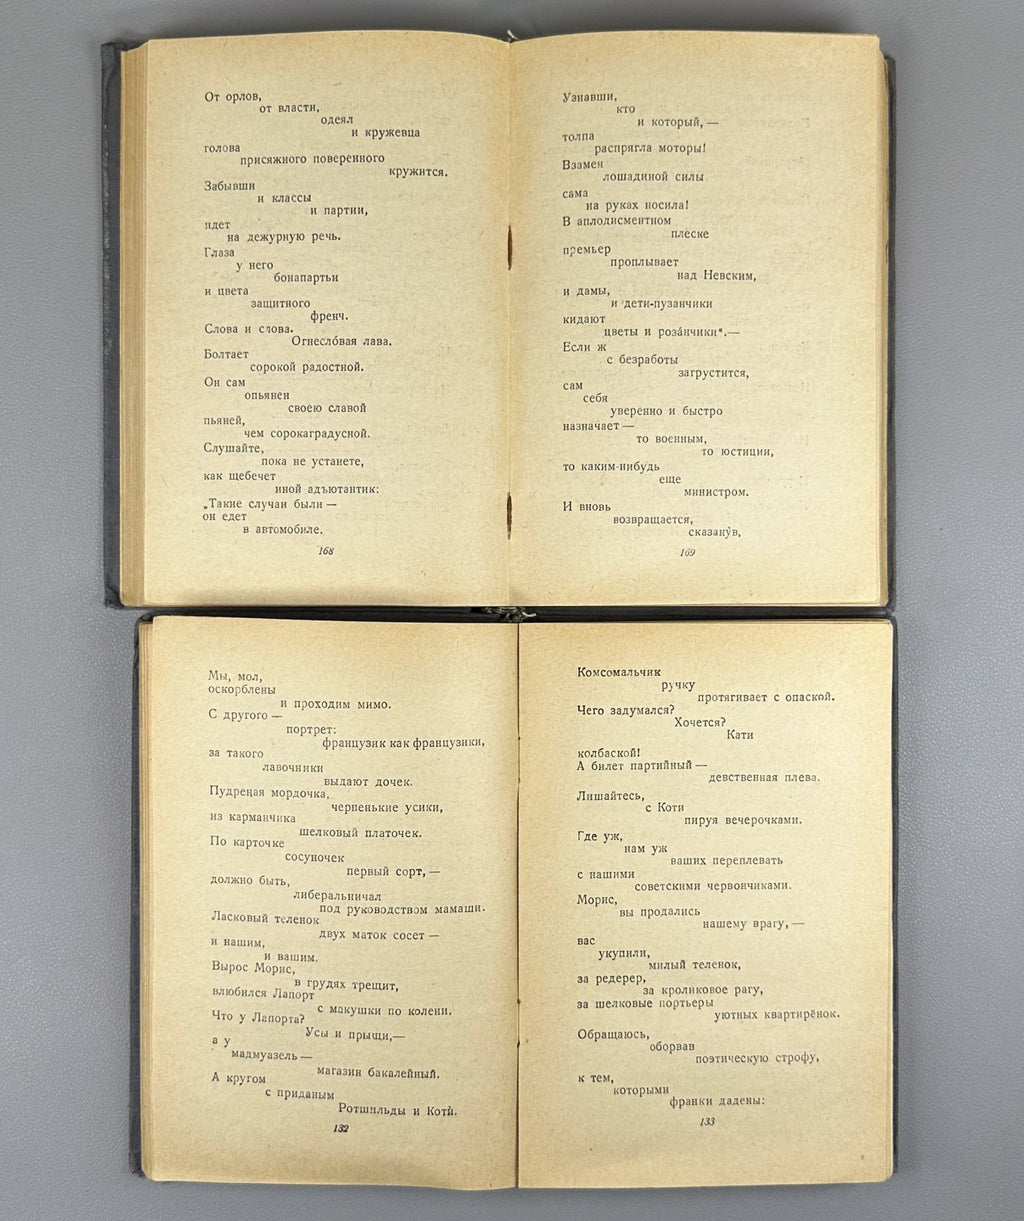 От орлов,
от власти,
одеял
и кружевца
голова
присяжного поверенного
кружится.
Забывши
и классы
и партии,
идет
на дежурную речь.
Глаза
у него
бонапартьи
и цвета
защитного
френч.
Слова и слова.
Огнесло́вая лава.
Болтает
сорокой радостной.
Он сам
опьянен
своею славой
пьяней,
чем сорокаградусной.
Слушайте,
пока не устанете,
как щебечет
иной адъютантик:
„Такие случаи были —
он едет
в автомобиле.
168
Узнавши,
кто
и который, —
толпа
распрягла моторы!
Взамен
лошадиной силы
сама
на руках носила!
В аплодисментном
плеске
премьер
проплывает
над Невским,
и дамы,
и дети-пузанчики
кидают
цветы и роза́нчики“.—
Если ж
с безработы
загрустится,
сам
себя
уверенно и быстро
назначает —
то военным,
то юстиции,
то каким-нибудь
еще
министром.
И вновь
возвращается,
сказану́в,
169
Мы, мол,
оскорблены
и проходим мимо.
С другого —
портрет:
французик как французики,
за такого
лавочники
выдают дочек.
Пудреная мордочка,
черненькие усики,
из карманчика
шелковый платочек.
По карточке
сосуночек
первый сорт, —
должно быть,
либеральничал
под руководством мамаши.
Ласковый теленок
двух маток сосет —
и нашим,
и вашим.
Вырос Морис,
в грудях трещит,
влюбился Лапорт
с макушки по колени.
Что у Лапорта?
Усы и прыщи,—
а у
мадмуазель —
магазин бакалейный.
А кругом
с приданым
Ротшильды и Коти́.
132
Комсомальчик
ручку
протягивает с опаской.
Чего задумался?
Хочется?
Кати
колбаской!
А билет партийный —
девственная плева.
Лишайтесь,
с Коти
пируя вечерочками.
Где уж,
нам уж
ваших переплевать
с нашими
советскими червончиками.
Морис,
вы продались
нашему врагу, —
вас
укупили,
милый теленок,
за редерер,
за кроликовое рагу,
за шелковые портьеры
уютных квартирёнок.
Обращаюсь,
оборвав
поэтическую строфу,
к тем,
которыми
франки дадены:
133